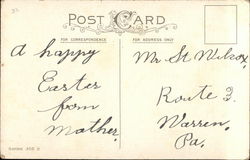 POST CARD
FOR CORRESPONDENCE
FOR ADDRESS ONLY
A happy
Easter
from
Mother.
Mr St Wilcox,
Route 3.
Warren,
Pa.